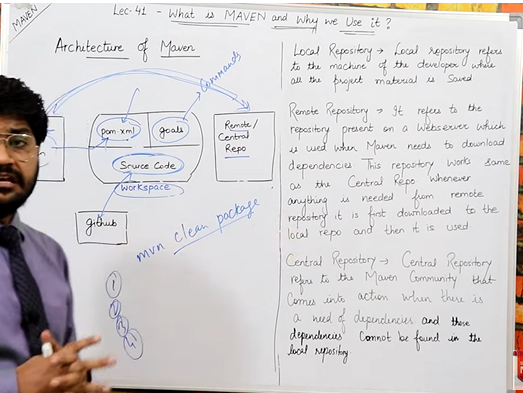 MAVEN
Lec-41 - What is MAVEN and Why we Use it ?
Architecture of Maven
Commands
pom.xml
goals
Source Code
Workspace
Remote/
Central
Repo
github
mvn clean package
1
2
3
4
Local Repository → Local repository refers
to the machine of the developer where
all the project material is Saved
Remote Repository → It refers to the
repository present on a Webserver which
is used when Maven needs to download
dependencies This repository works same
as the Central Repo Whenever
anything is needed from remote
repository it is first downloaded to the
local repo and then it is used
Central Repository → Central Repository
refers to the Maven Community that
Comes into action when there is
a need of dependencies and those
dependencies Cannot be found in the
local repository.